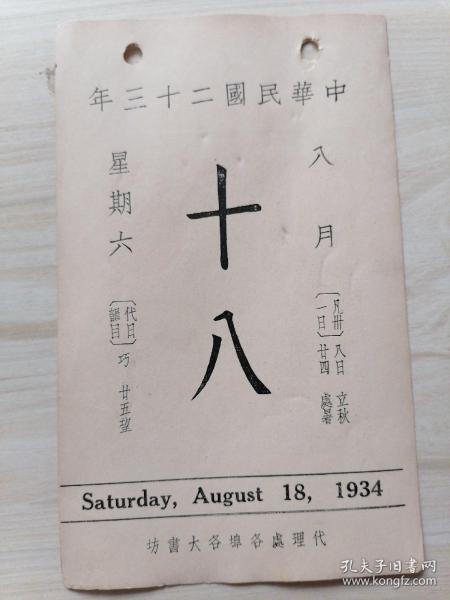 中華民國二十三年
八月
〔凡卅一日〕
八日 立秋
廿四 處暑
十八
星期六
〔代日韻目〕
巧 廿五望
Saturday, August 18, 1934
代理處各埠各大書坊
孔夫子旧书网
www.kongfz.com